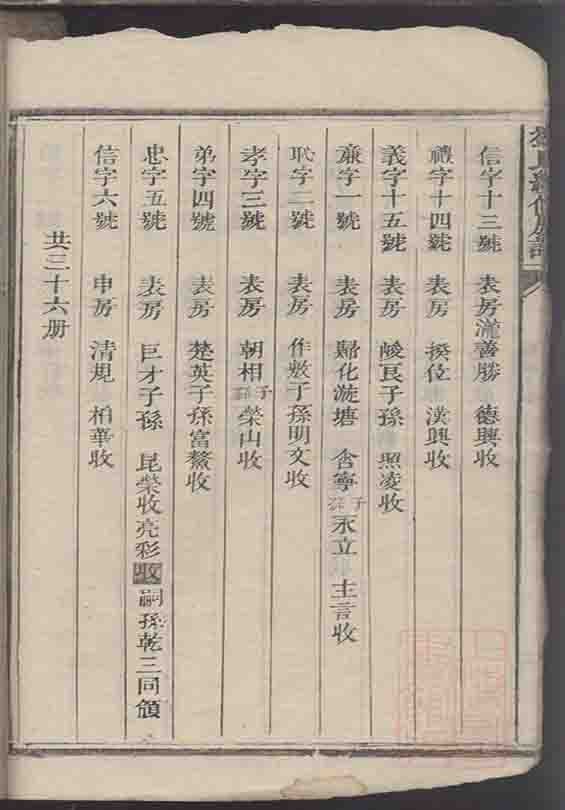 信字十三號 表房瀧善勝 德興收
禮字十四號 表房 揆位 漢興收
義字十五號 表房 峻良子孫 照凌收
亷字一號 表房 歸化漩塘 含寧子孫永立 主言收
恥字二號 表房 作敷子孫明文收
孝字三號 表房 朝相子孫榮山收
弟字四號 表房 楚英子孫富鰲收
忠字五號 表房 巨才子孫 昆榮收亮彩收嗣孫乾三同領
信字六號 申房 清規 柏華收
共三十六册